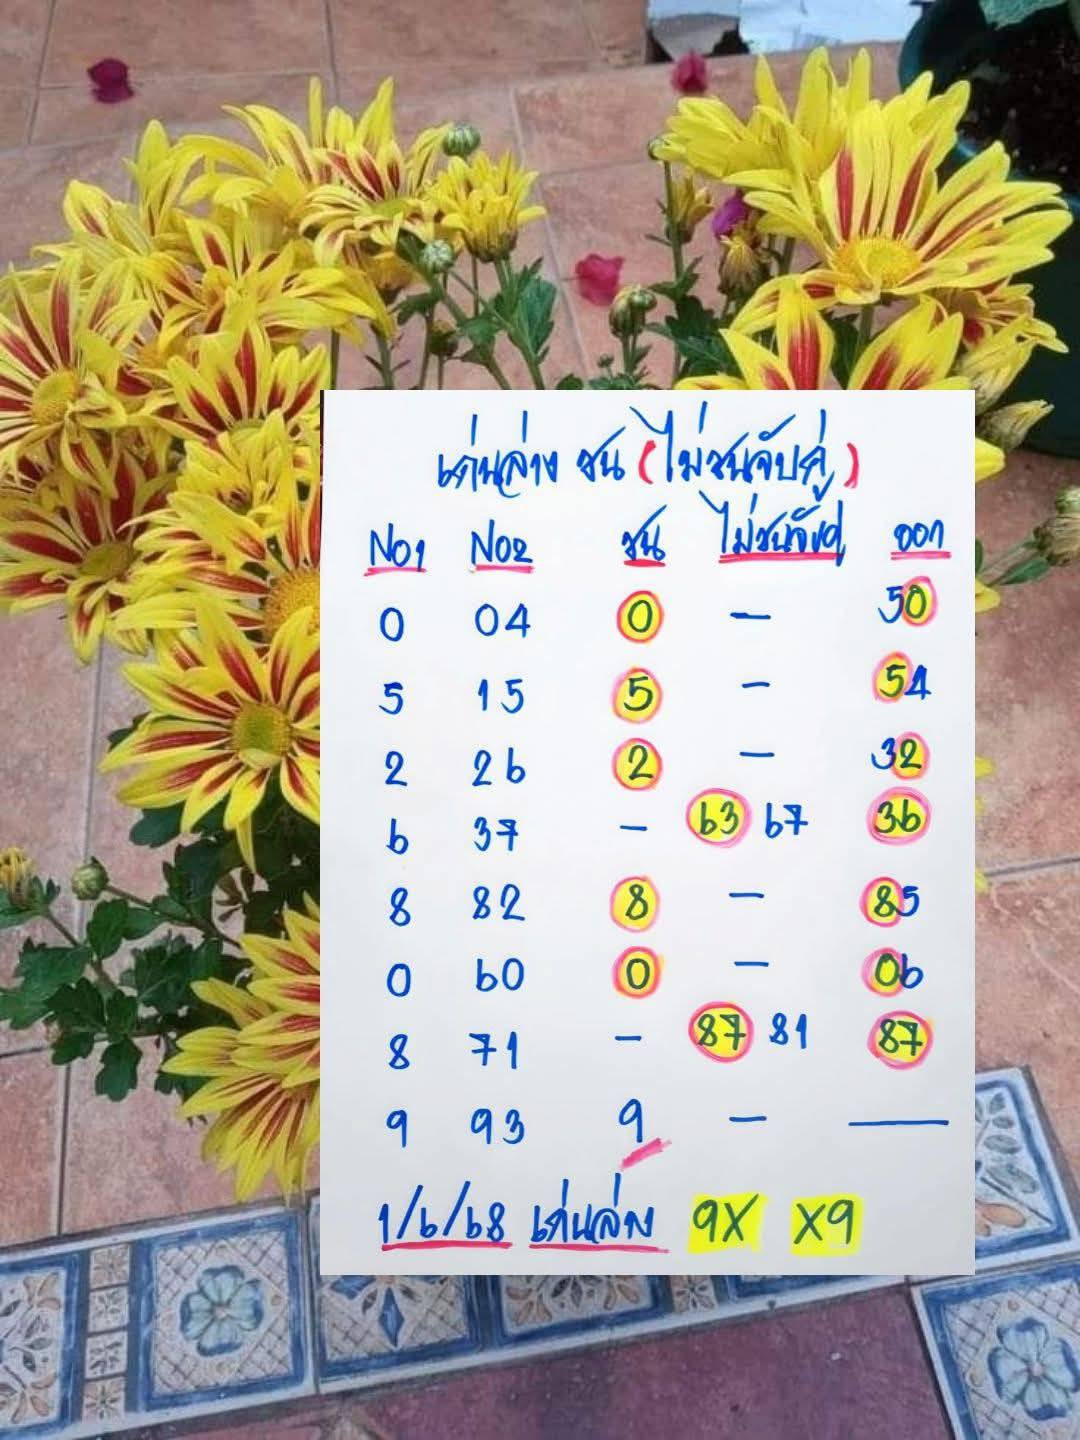 เด่นล่าง ชน (ไม่ชนจับคู่)
No1 No2 ชน ไม่ชนจับคู่ ออก
0 04 0 — 50
5 15 5 — 54
2 26 2 — 32
6 37 — 63 67 36
8 82 8 — 85
0 60 0 — 06
8 71 — 87 81 87
9 93 9 — —
1/6/68 เด่นล่าง 9X X9